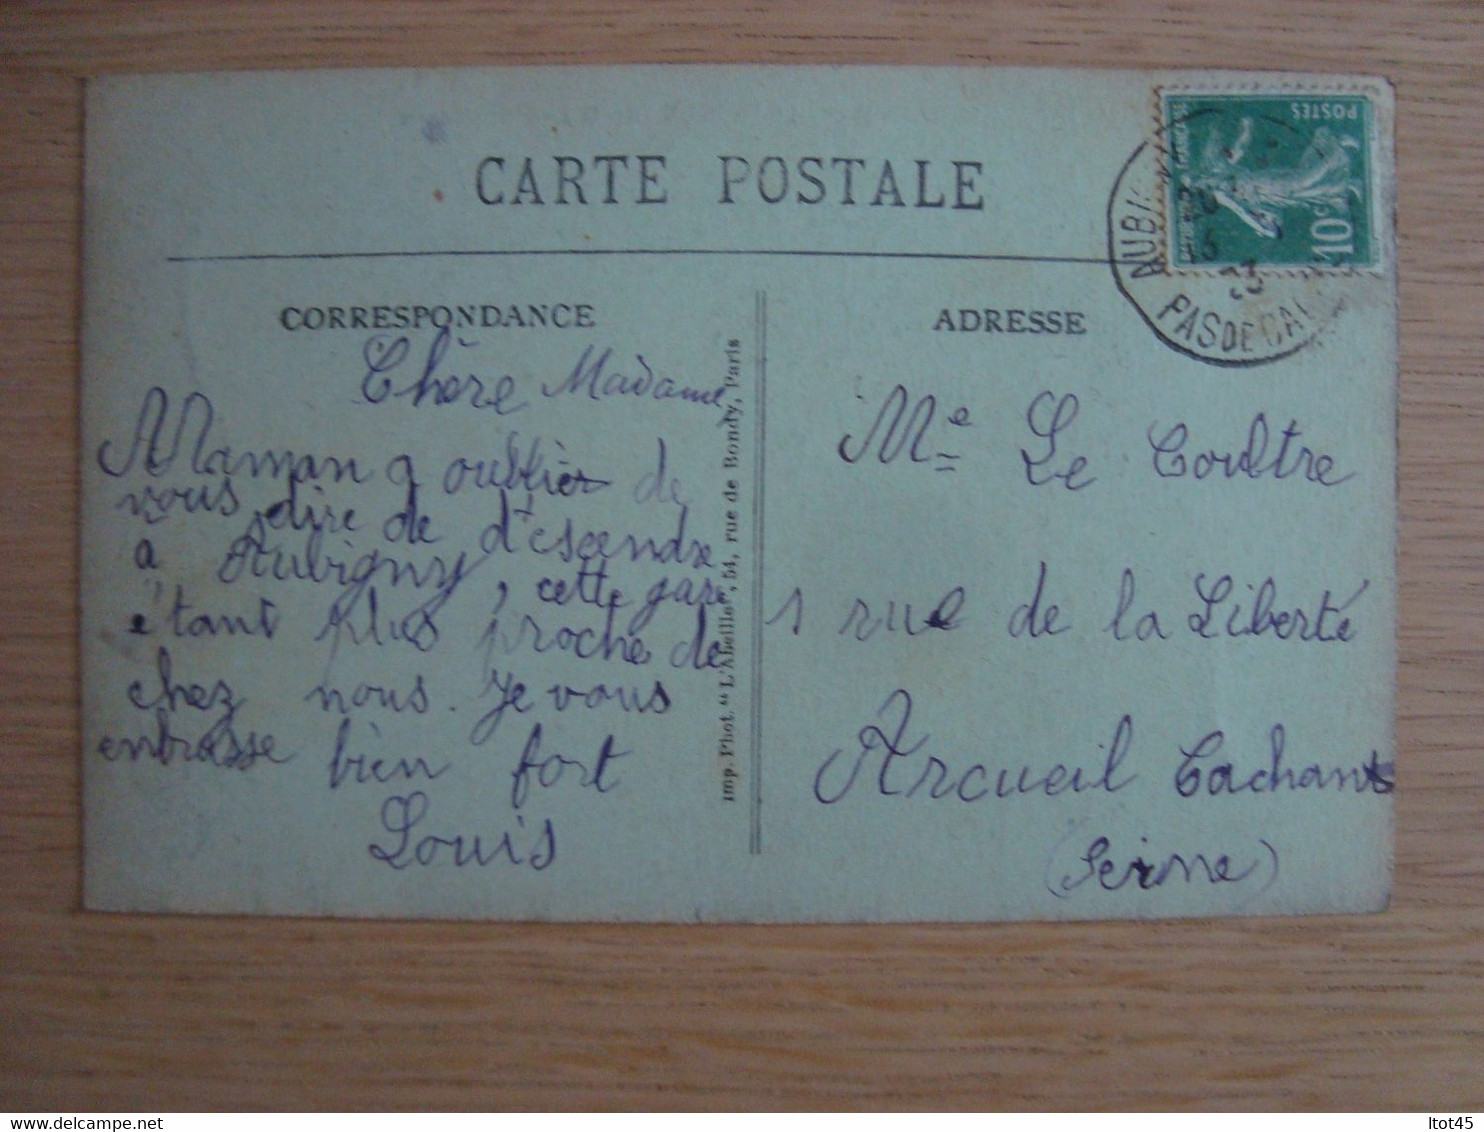 CARTE POSTALE
CORRESPONDANCE
Chère Madame,
Maman a oublier de
vous dire de d'escendre
à Aubigny, cette gare
étant plus proche de
chez nous. Je vous
enbrasse bien fort
Louis
Imp. Phot. "L'Abeille", 54, rue de Bondy, Paris
ADRESSE
Me Le Coultre
1 rue de la Liberté
Arcueil Cachant
(Seine)
POSTES
10c
PAS DE CAL
delcampe.net
ltot45